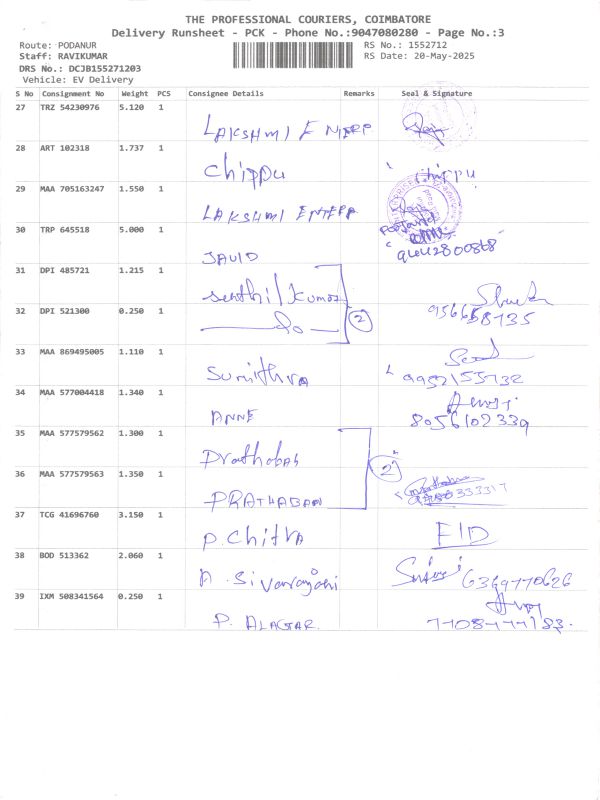 THE PROFESSIONAL COURIERS, COIMBATORE
Delivery Runsheet - PCK - Phone No.:9047080280 - Page No.:3
Route: PODANUR RS No.: 1552712
Staff: RAVIKUMAR RS Date: 20-May-2025
DRS No.: DCJB155271203
Vehicle: EV Delivery
S No Consignment No Weight PCS Consignee Details Remarks Seal & Signature
27 TRZ 54230976 5.120 1
LAKSHMI ENTERP
28 ART 102318 1.737 1
Chippu Chippu
29 MAA 705163247 1.550 1
LAKSHMI ENTERP
30 TRP 645518 5.000 1
JAVID
31 DPI 485721 1.215 1
senthil kumar
32 DPI 521300 0.250 1
Do 2 9566658735
33 MAA 869495005 1.110 1
Sumithra 9952155732
34 MAA 577004418 1.340 1
ANNE 8056102339
35 MAA 577579562 1.300 1
Prathaban
36 MAA 577579563 1.350 1
PRATHABAN 2
37 TCG 41696760 3.150 1
P. Chitra FID
38 BOD 513362 2.060 1
A. Sivaranjani 6369770626
39 IXM 508341564 0.250 1
P. ALAGAR. 7708777183